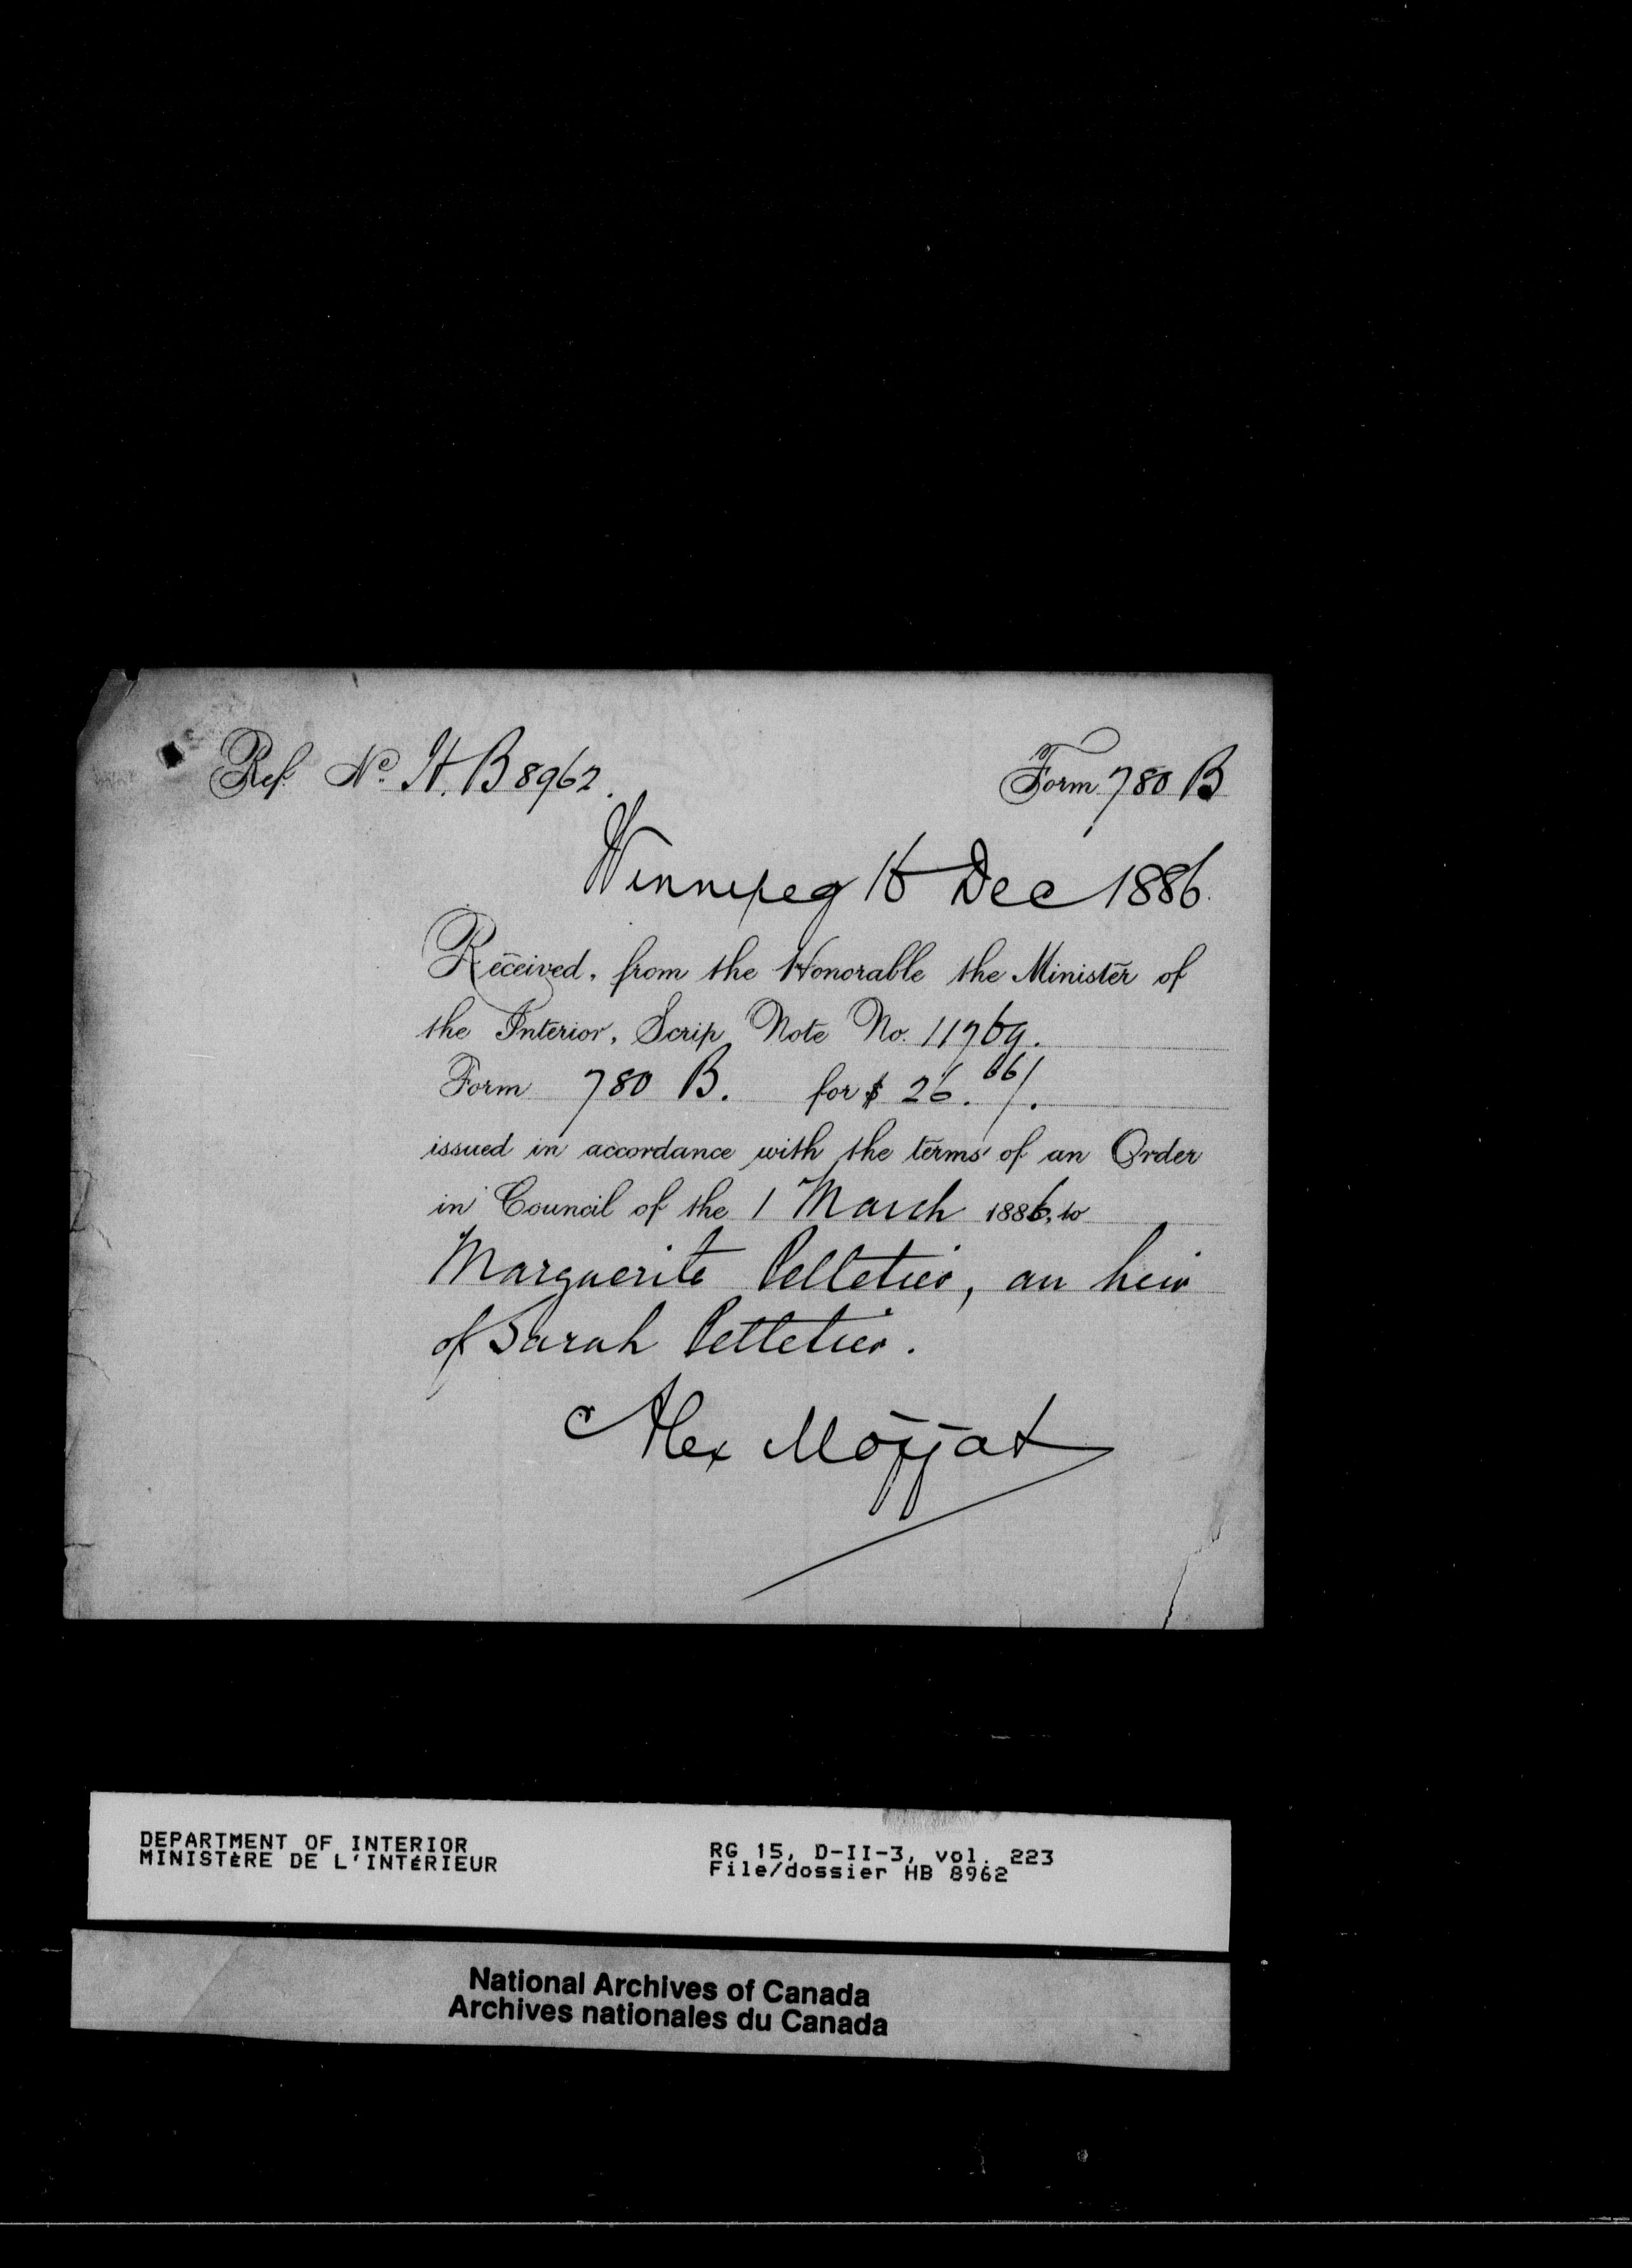 Ref. No. H.B 8962.
Form 780 B
Winnipeg 16 Dec 1886.
Received, from the Honorable the Minister of
the Interior, Scrip Note No. 11769.
Form 780 B. for $ 26.66/.
issued in accordance with the terms of an Order
in Council of the 1 March 1886, to
Marguerite Pelletier, an heir
of Sarah Pelletier.
Alex Moffat
DEPARTMENT OF INTERIOR
MINISTÈRE DE L'INTÉRIEUR
RG 15, D-II-3, vol. 223
File/dossier HB 8962
National Archives of Canada
Archives nationales du Canada